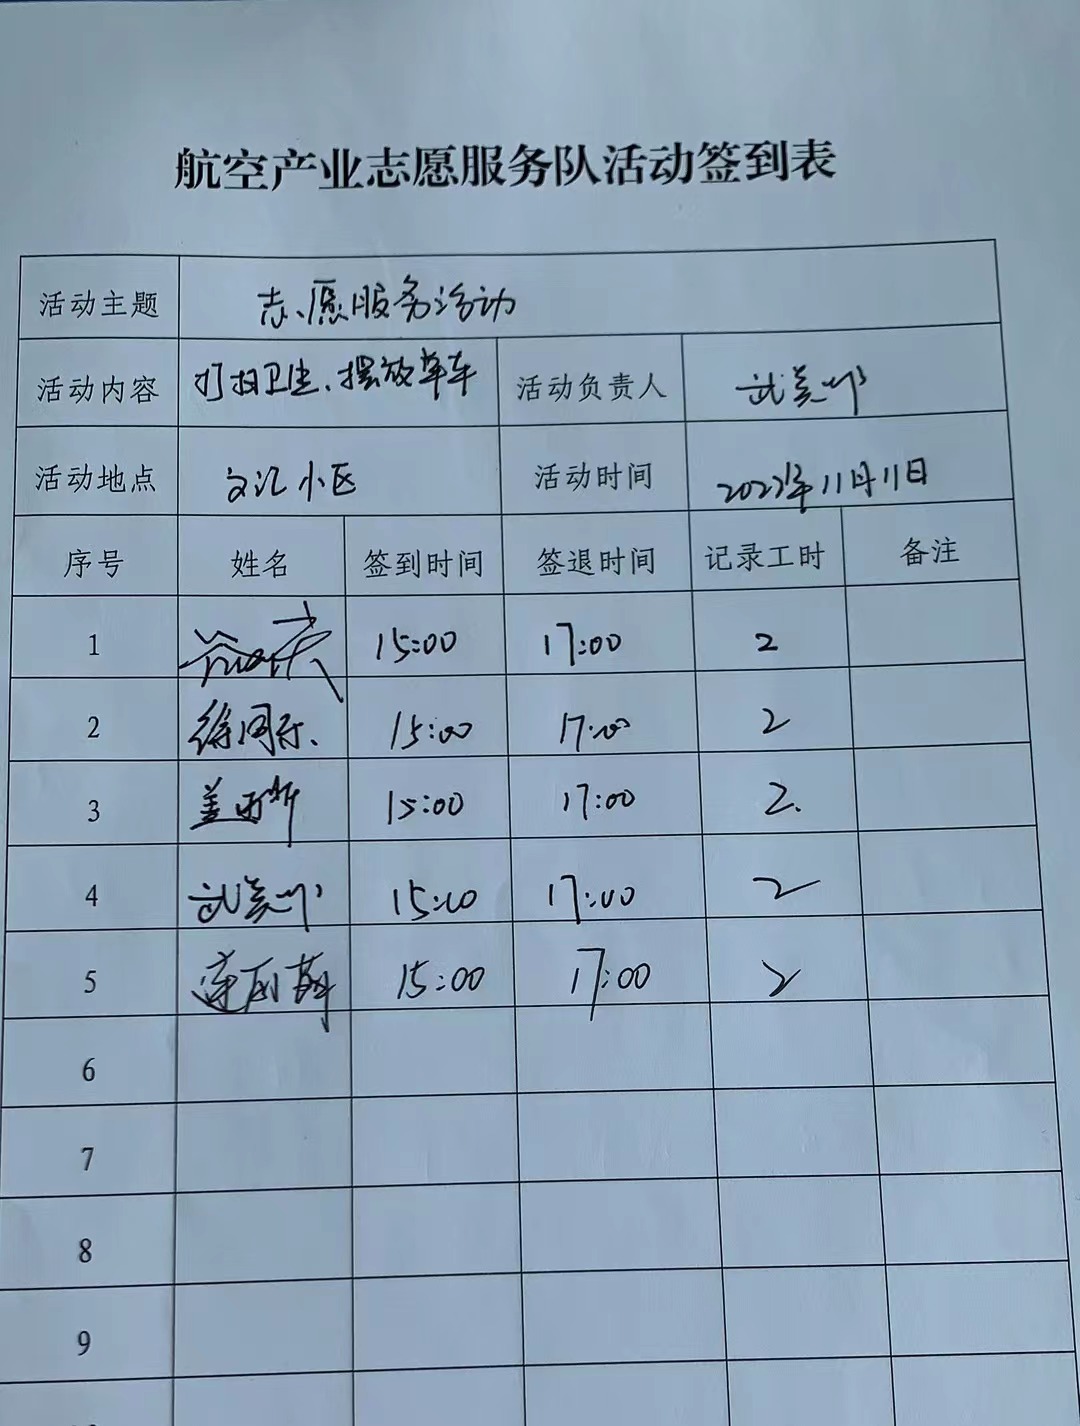 航空产业志愿服务队活动签到表
活动主题 志愿服务活动
活动内容 打扫卫生、摆放单车 活动负责人
活动地点 文汇小区 活动时间 2023年11月11日
序号 姓名 签到时间 签退时间 记录工时 备注
1 15:00 17:00 2
2 徐同乐 15:00 17:00 2
3 盖雨昕 15:00 17:00 2.
4 15:00 17:00 2
5 15:00 17:00 2
6
7
8
9